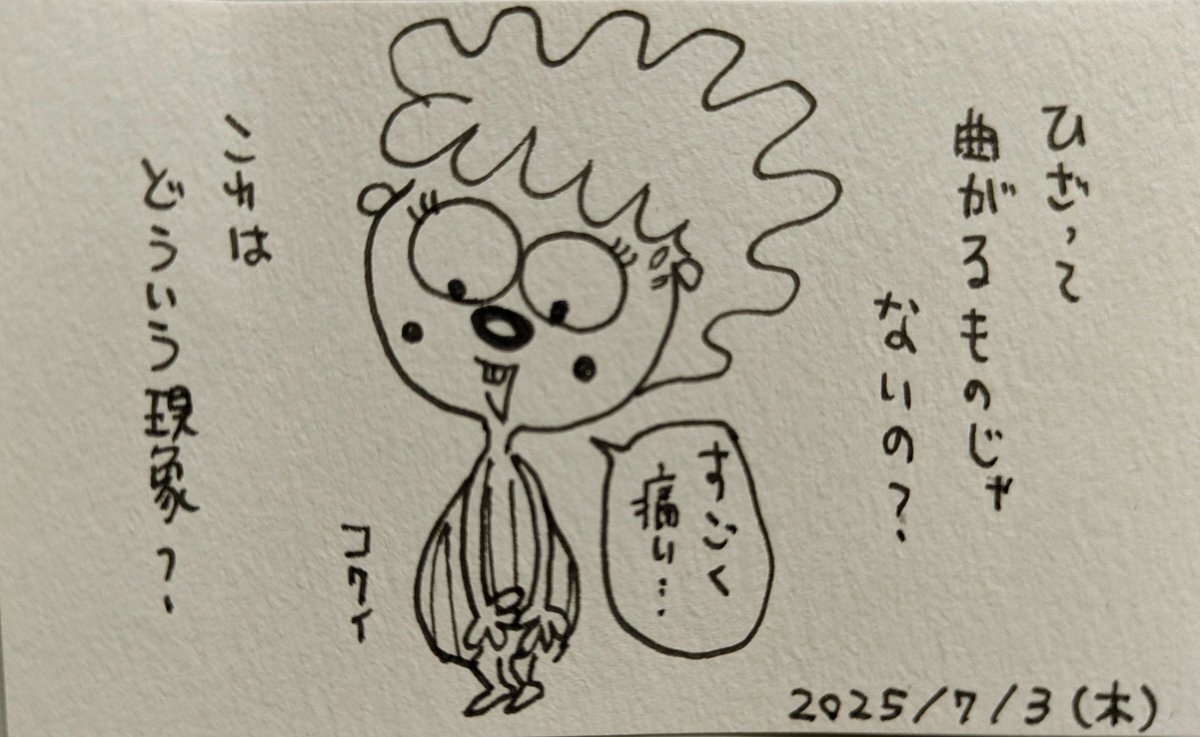 ひざって
曲がるものじゃ
ないの?
すごく
痛い…
これは
どういう現象?
コワイ
2025/7/3(木)